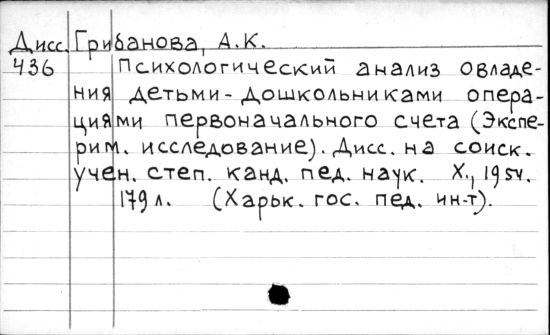 Дисс. Грибанова, А.К.
436 Психологический анализ овладе-
ния детьми-дошкольниками опера-
циями первоначального счета (Экспе-
рим. исследование). Дисс. на соиск.
учен. степ. канд. пед. наук. Х., 1954.
179 л. (Харьк. гос. пед. ин-т).